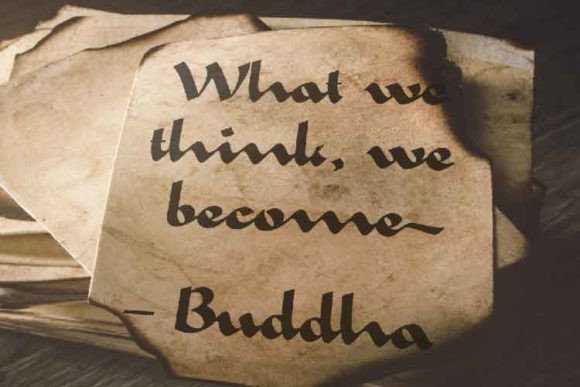 What we
think, we
become
- Buddha